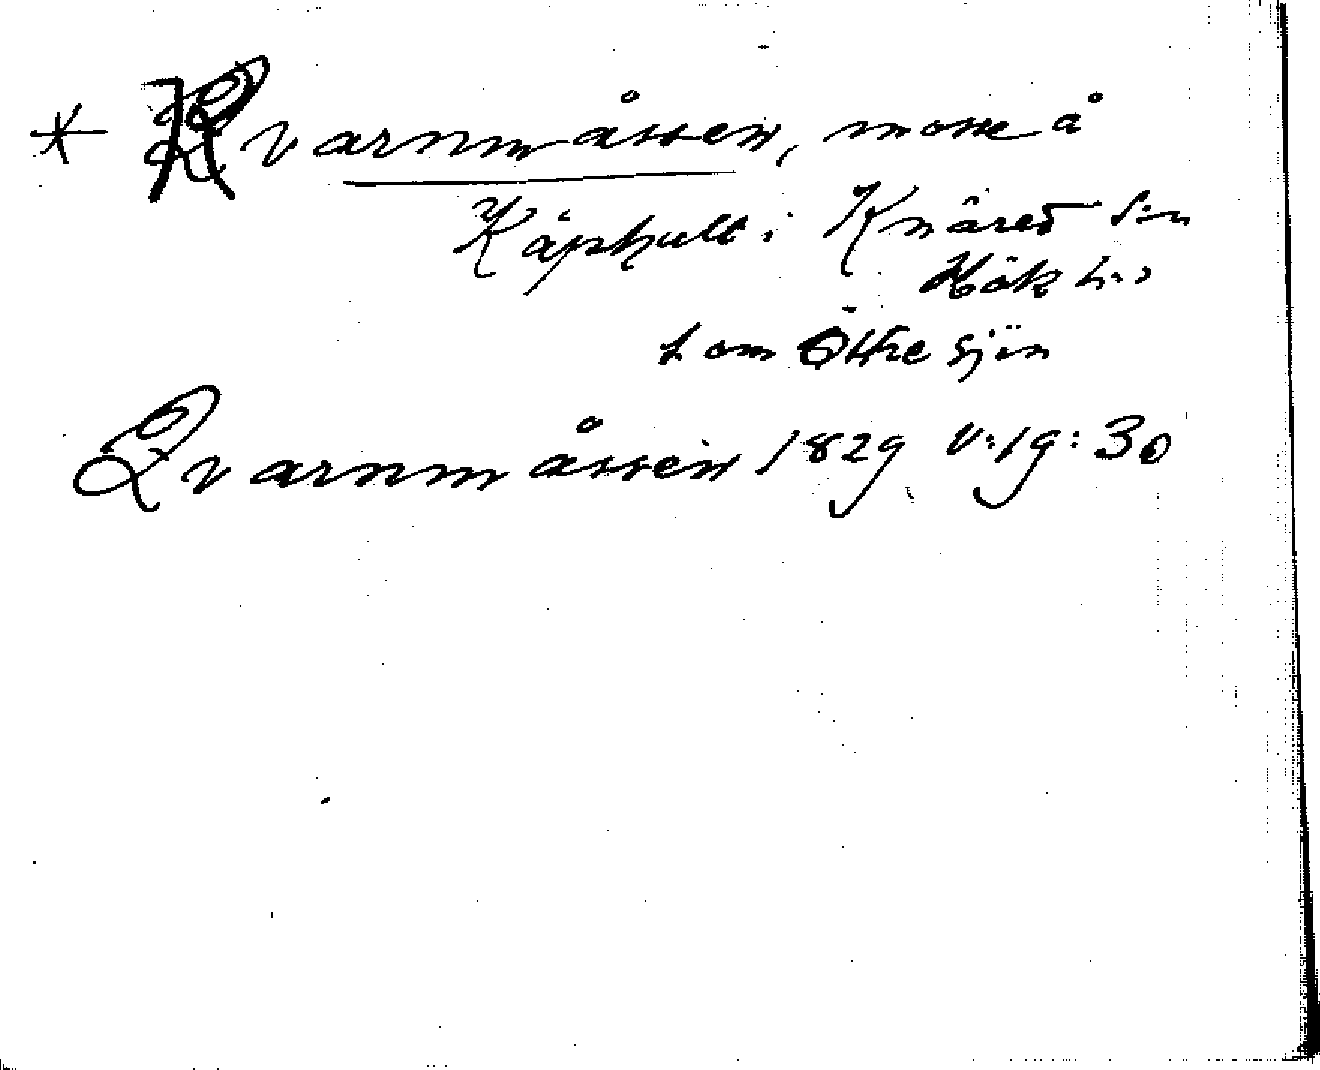 * Kvarnmåssen, mosse å
Kåphult i Knäred s:n
Höks h:d
t om Öttre sjön
Qvarnmåssen 1829 V:19:30